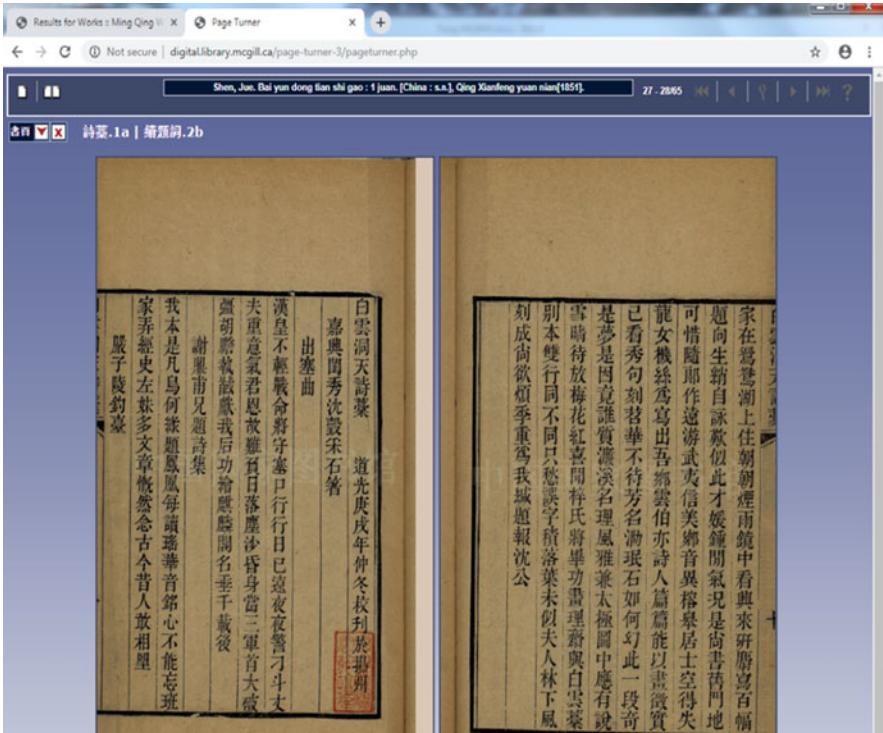 Results for Works :: Ming Qing W
Page Turner
Not secure | digital.library.mcgill.ca/page-turner-3/pageturner.php
Shen, Jue. Bai yun dong tian shi gao : 1 juan. [China : s.n.], Qing Xianfeng yuan nian[1851].
27 - 28/65
書頁
詩藁.1a | 繪題詞.2b
家在鴛鴦湖上住朝朝煙雨鏡中看興來硏麝寫百幅
題向生綃自詠歎似此才媛鍾閒氣況是尚書舊門地
可惜隨郎作遠游武夷信美鄉音異榕皋居士空得失
龍女機絲爲寫出吾鄉雲伯亦詩人篇篇能以畫徵實
已看秀句刻苕華不待芳名泐珉石如何幻此一段奇
是夢是因竟誰質濂溪名理風雅兼太極圖中應有說
雪晴待放梅花紅喜聞梓氏將畢功畫理齋與白雲藁
別本雙行同不同只愁誤字積落葉未似夫人林下風
刻成尚欲煩季重爲我緘題報沈公
白雲洞天詩藁 道光庚戌年仲冬校刊於揚州
嘉興閨秀沈瑴采石箸
出塞曲
漢皇不輕戰命將守塞口行行日已遠夜夜警刁斗丈
夫重意氣君恩故難負日落塵沙昏身當三軍首大破
彊胡膽馘獻我后功繪麒麟閣名垂千載後
謝巽甫兄題詩集
我本是凡鳥何緣題鳳凰每讀瑤華音銘心不能忘班
家弄經史左妹多文章慨然念古今昔人敢相望
嚴子陵釣臺